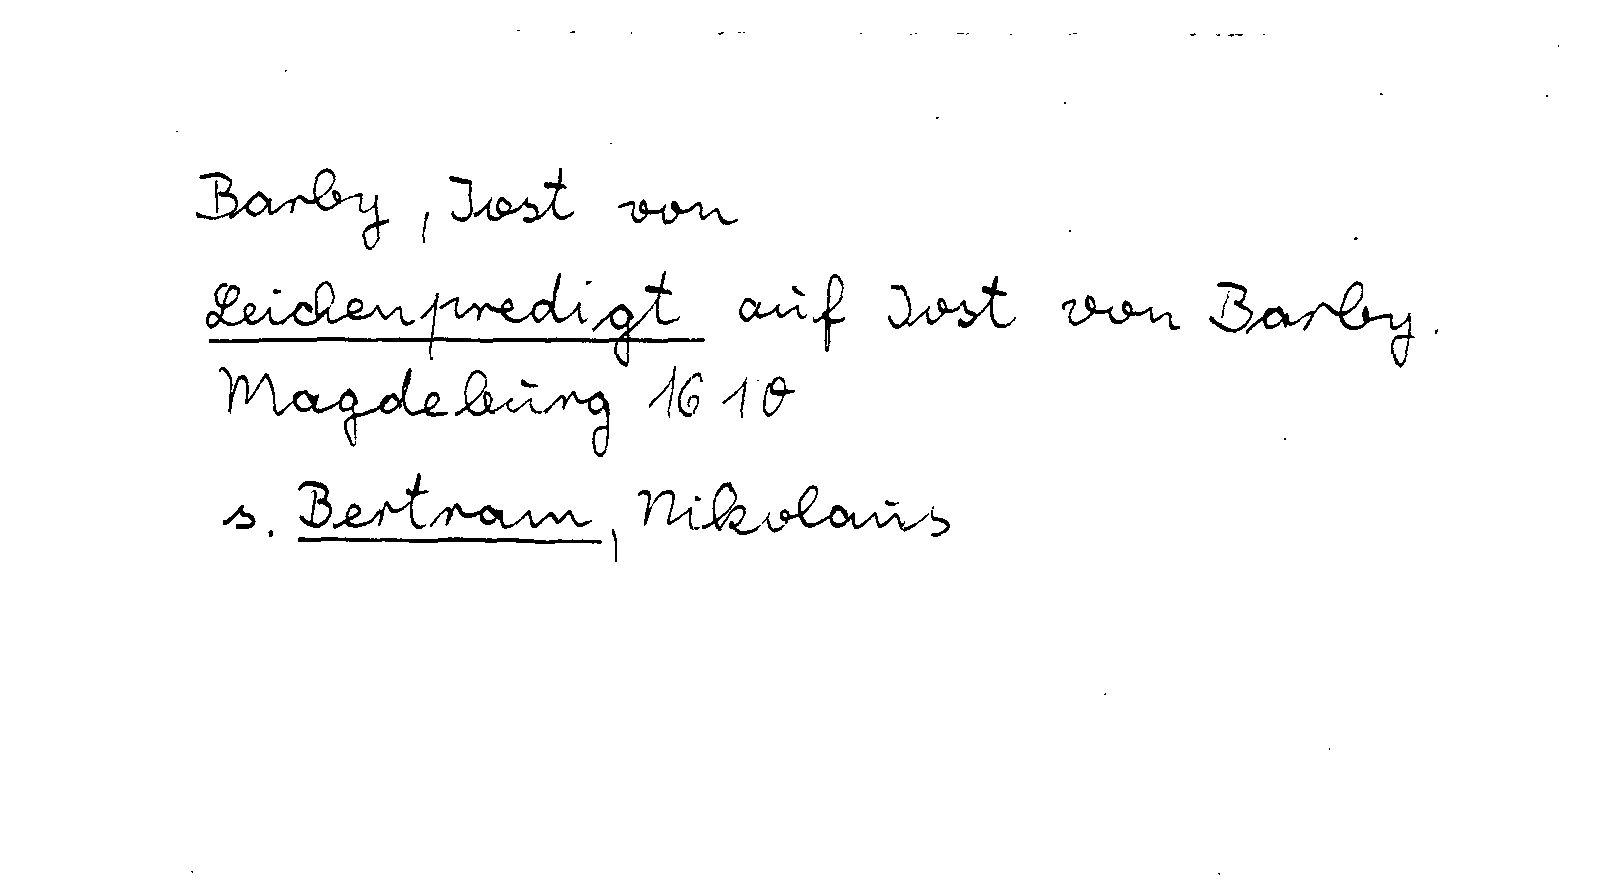 Barby, Jost von
Leichenpredigt auf Jost von Barby.
Magdeburg 1610
s. Bertram, Nikolaus